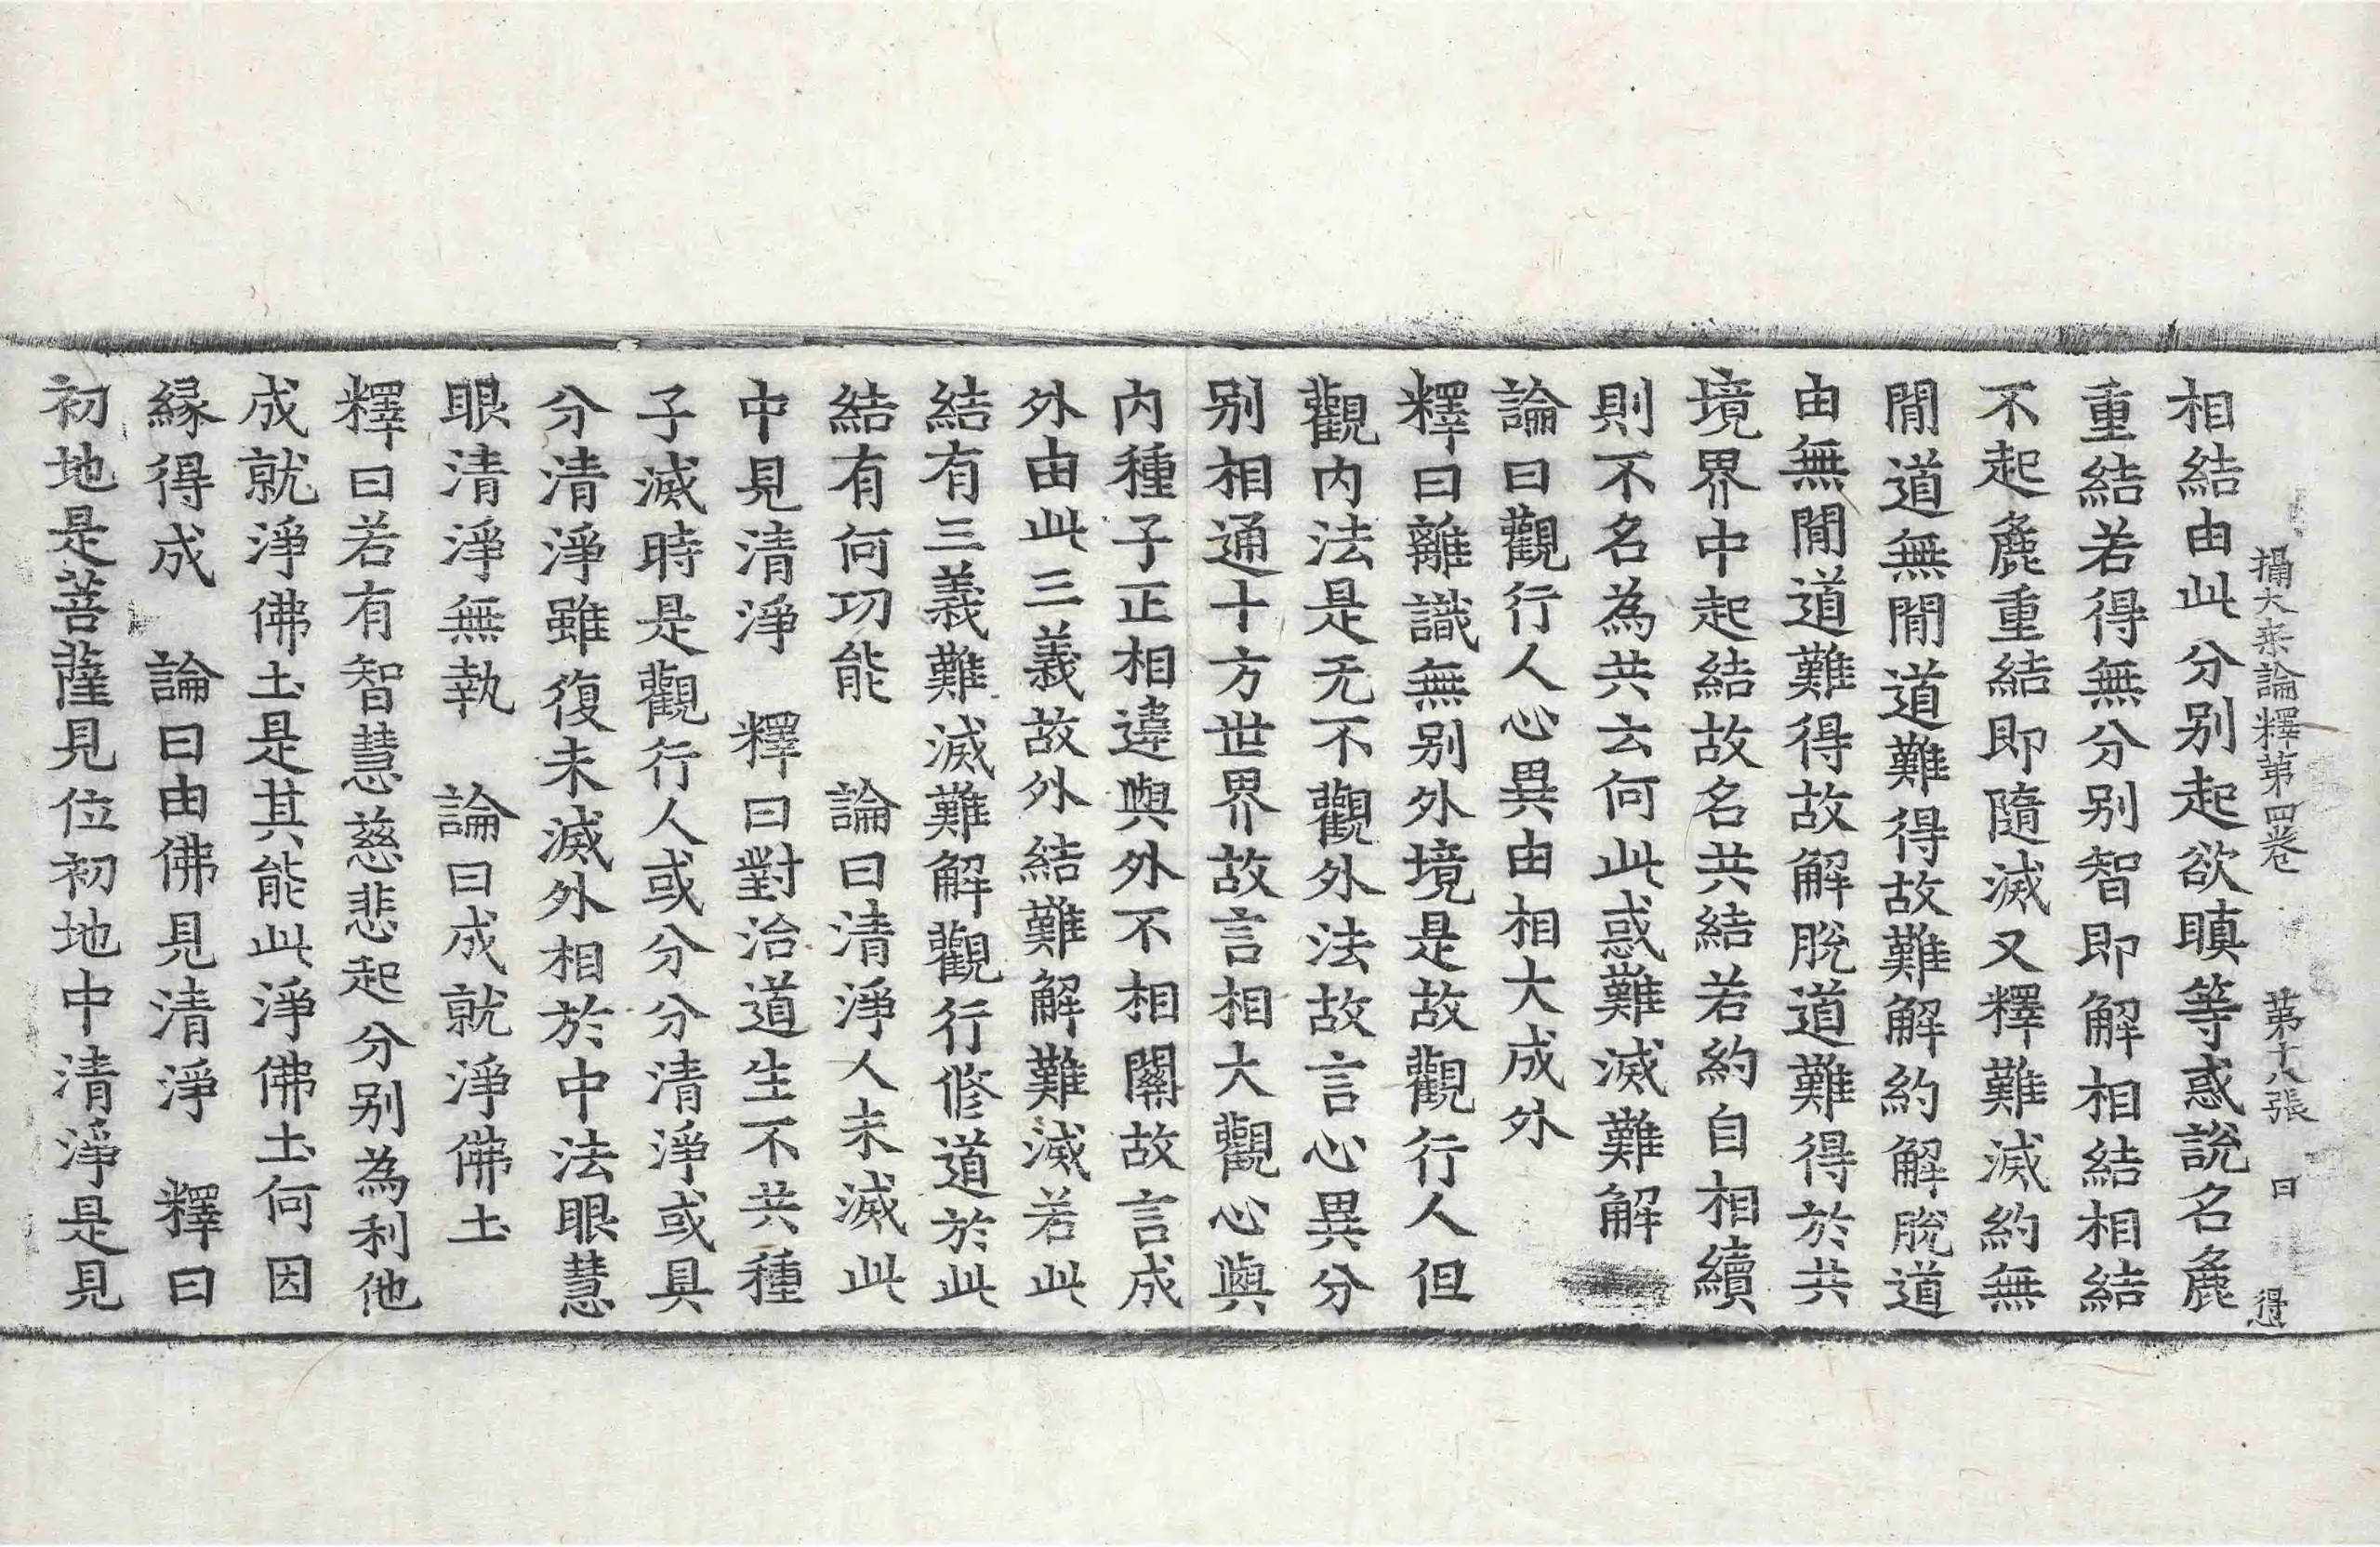 攝大乘論釋第四卷 第十八張 日 得
相結由此分別起欲瞋等惑說名麁
重結若得無分別智即解相結相結
不起麁重結即隨滅又釋難滅約無
閒道無閒道難得故難解約解脫道
由無閒道難得故解脫道難得於共
境界中起結故名共結若約自相續
則不名為共云何此惑難滅難解
論曰觀行人心異由相大成外
釋曰離識無別外境是故觀行人但
觀內法是无不觀外法故言心異分
別相通十方世界故言相大觀心與
內種子正相違與外不相關故言成
外由此三義故外結難解難滅若此
結有三義難滅難解觀行修道於此
結有何功能 論曰清淨人未滅此
中見清淨 釋曰對治道生不共種
子滅時是觀行人或分分清淨或具
分清淨雖復未滅外相於中法眼慧
眼清淨無執 論曰成就淨佛土
釋曰若有智慧慈悲起分別為利他
成就淨佛土是其能此淨佛土何因
緣得成 論曰由佛見清淨 釋曰
初地是菩薩見位初地中清淨是見